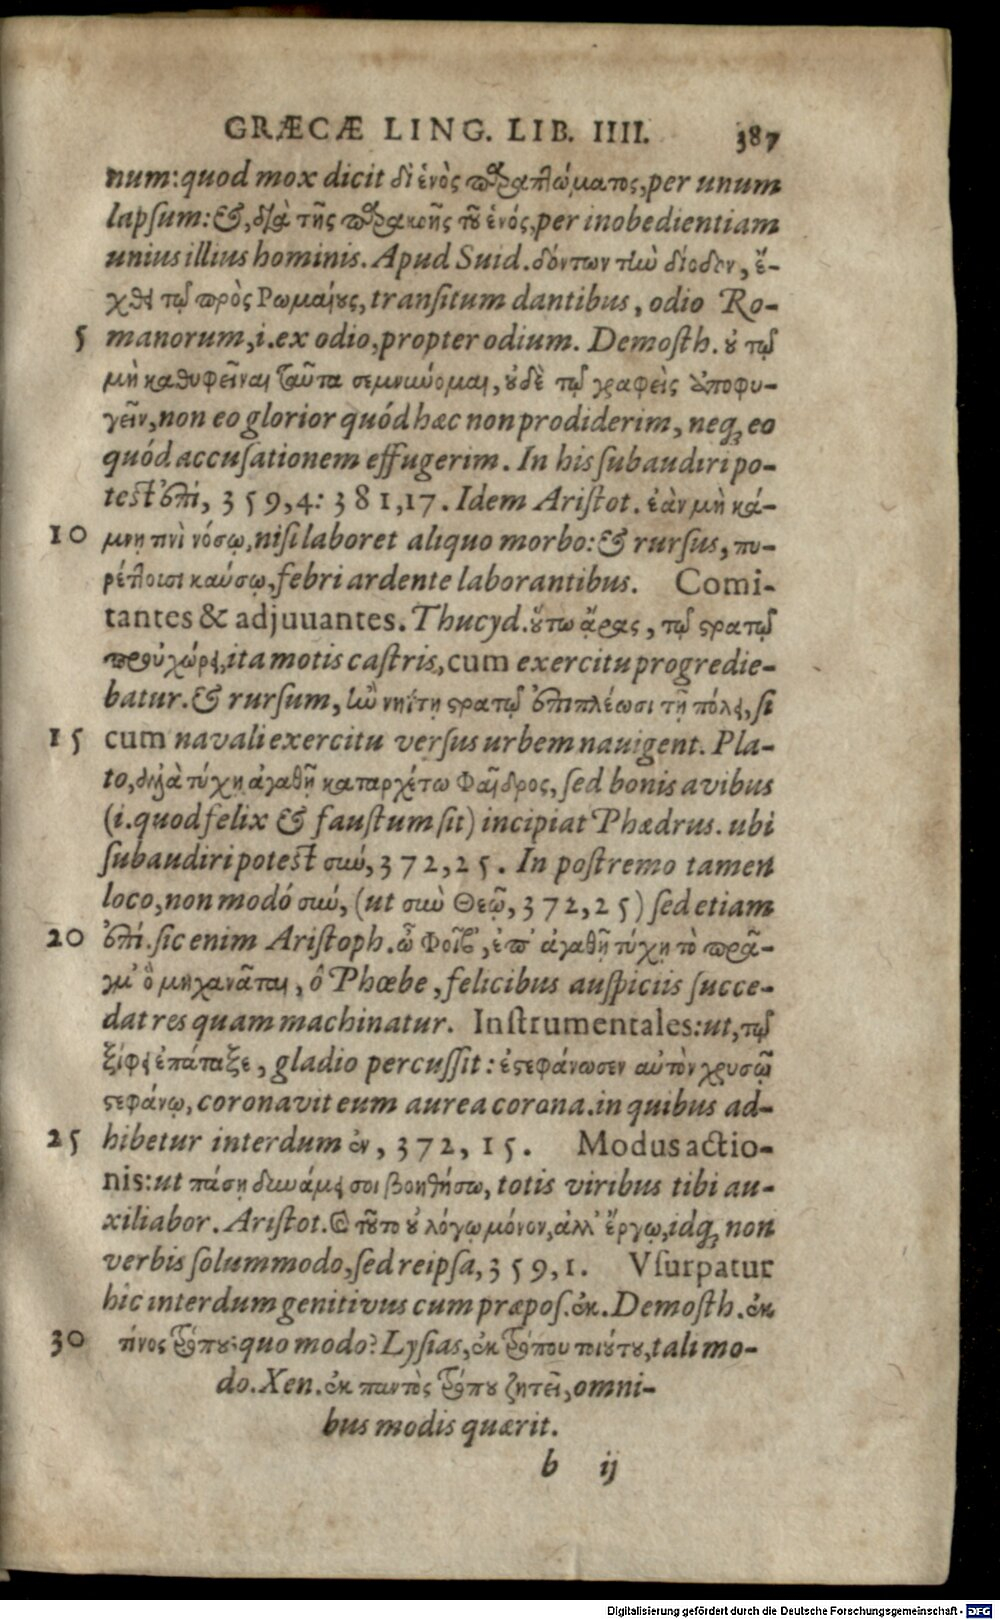 GRÆCÆ LING. LIB. IIII. 387
num: quod mox dicit δι' ἑνὸς παραπτώματος, per unum
lapsum: &, διὰ τῆς παρακοῆς τοῦ ἑνός, per inobedientiam
unius illius hominis. Apud Suid. δόντων τὴν δίοδον, ἔ-
χθει τῷ πρὸς Ρωμαίους, transitum dantibus, odio Ro-
5 manorum, i. ex odio, propter odium. Demosth. οὐ τῷ
μὴ καθυφεῖναι ταῦτα σεμνύνομαι, οὐδὲ τῷ γραφεὶς ἀποφυ-
γεῖν, non eo glorior quód hæc non prodiderim, neq; eo
quód accusationem effugerim. In his subaudiri po-
test ἐπί, 359,4: 381,17. Idem Aristot. ἐὰν μὴ κά-
10 μνῃ τινὶ νόσῳ, nisi laboret aliquo morbo: & rursus, πυ-
ρέττουσι καύσῳ, febri ardente laborantibus. Comi-
tantes & adjuvantes. Thucyd. οὕτω ἄρας, τῷ στρατῷ
προὐχώρει, ita motis castris, cum exercitu progredie-
batur. & rursum, ἢν νηΐτῃ στρατῷ ἐπιπλέωσι τῇ πόλει, si
15 cum navali exercitu versus urbem nauigent. Pla-
to, ἀλλὰ τύχῃ ἀγαθῇ καταρχέτω Φαῖδρος, sed bonis avibus
(i. quod felix & faustum sit) incipiat Phædrus. ubi
subaudiri potest σύν, 372,25. In postremo tamen
loco, non modó σύν, (ut σὺν Θεῷ, 372,25) sed etiam
20 ἐπί. sic enim Aristoph. ὦ Φοῖβ', ἐπ' ἀγαθῇ τύχῃ τὸ πρᾶ-
γμ' ὃ μηχανᾶται, ô Phœbe, felicibus auspiciis succe-
dat res quam machinatur. Instrumentales: ut, τῷ
ξίφει ἐπάταξε, gladio percussit: ἐστεφάνωσεν αὐτὸν χρυσῷ
στεφάνῳ, coronavit eum aurea corona. in quibus ad-
25 hibetur interdum ἐν, 372,15. Modus actio-
nis: ut πάσῃ δυνάμει σοι βοηθήσω, totis viribus tibi au-
xiliabor. Aristot. καὶ τοῦτο οὐ λόγῳ μόνον, ἀλλ' ἔργῳ, idq; non
verbis solummodo, sed reipsa, 359,1. Vsurpatur
hic interdum genitivus cum præpos. ἐκ. Demosth. ἐκ
30 τίνος τρόπου; quo modo? Lysias, ἐκ τρόπου τοιούτου, tali mo-
do. Xen. ἐκ παντὸς τρόπου ζητεῖ, omni-
bus modis quærit.
b ij
Digitalisierung gefördert durch die Deutsche Forschungsgemeinschaft - DFG